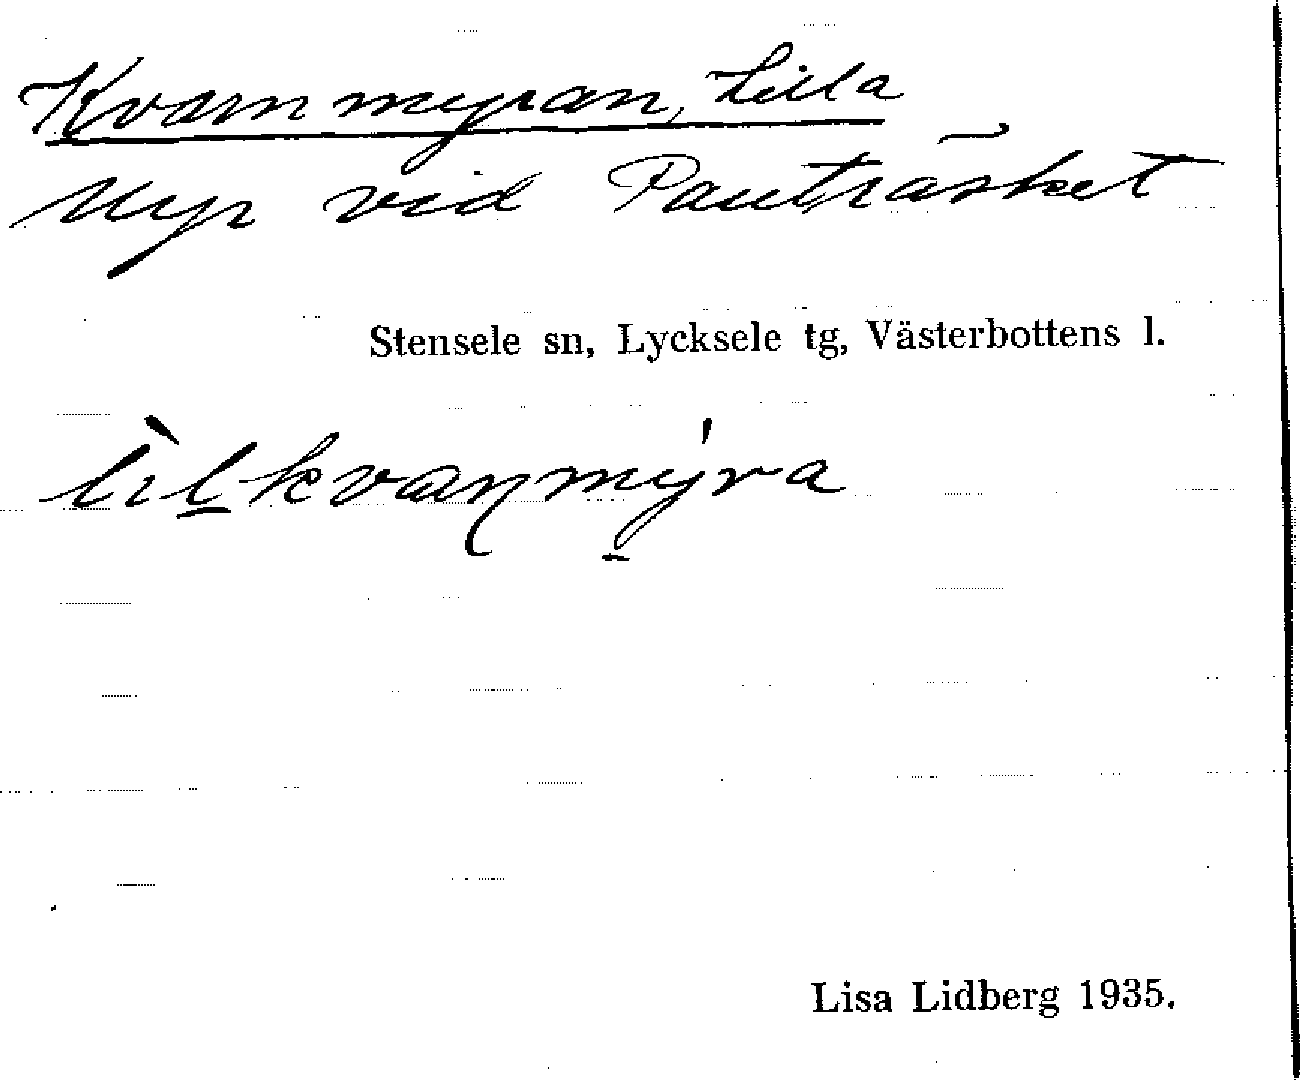 Kvarnmyran, Lilla
Myr vid Pauträsket
Stensele sn, Lycksele tg, Västerbottens l.
lìl̲kvaɳmý̲ra
Lisa Lidberg 1935.